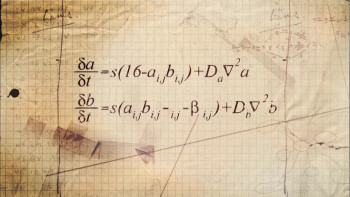 δa/δt = s(16-a_{i,j}b_{i,j})+D_a∇²a
δb/δt = s(a_{i,j}b_{i,j}-_{i,j}-β_{i,j})+D_b∇²b